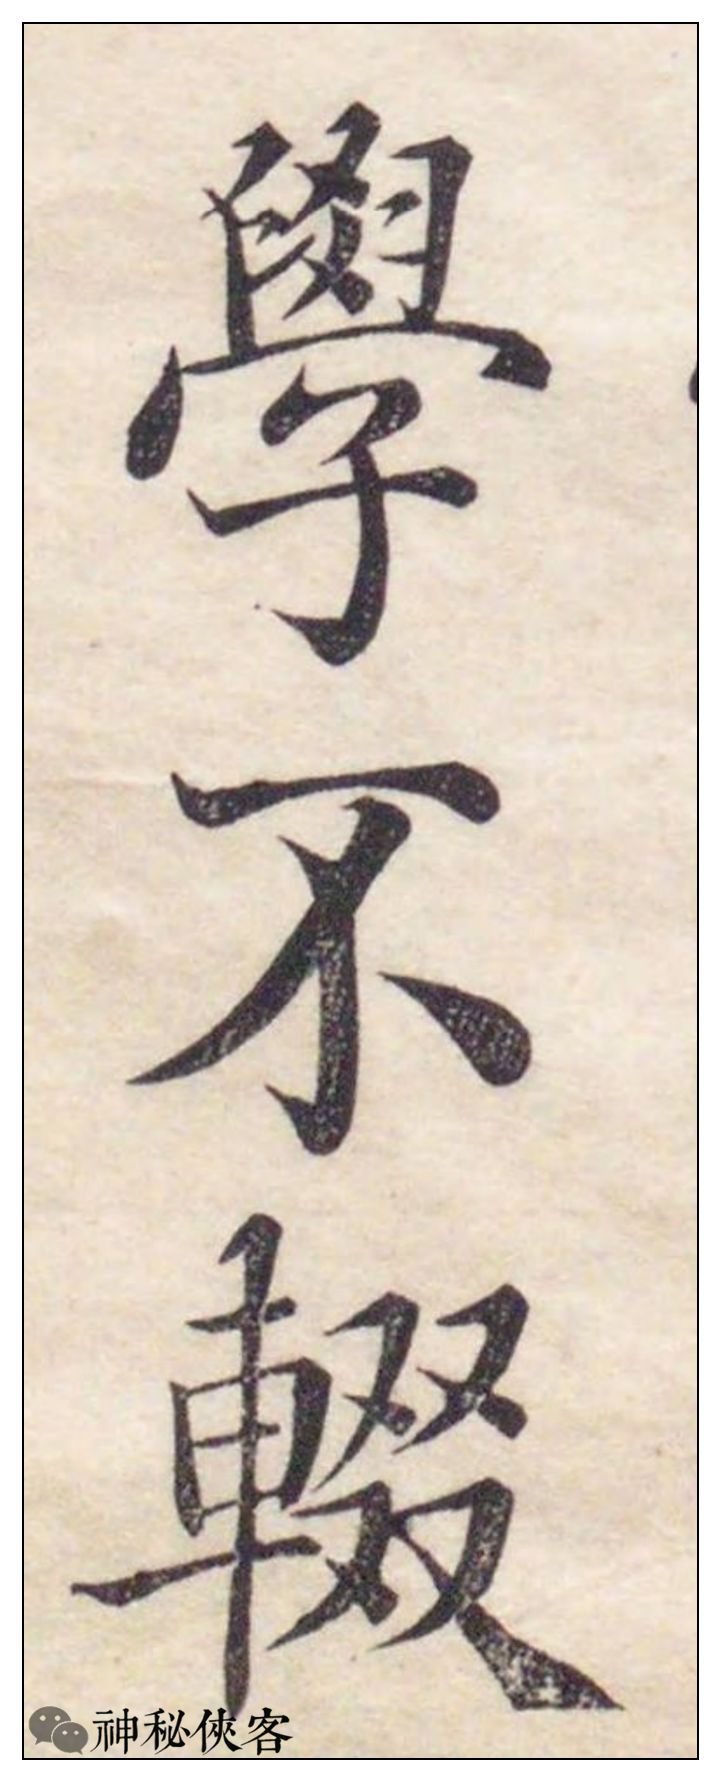 學不輟
神秘俠客